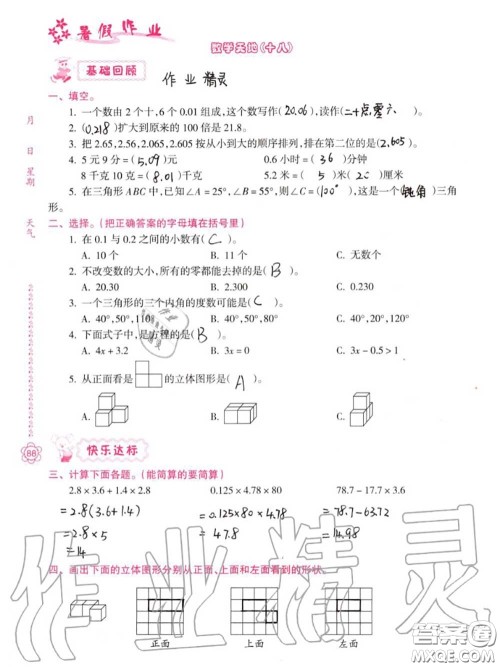 暑假作业
数学天地(十八)
基础回顾
作业精灵
一、填空。
1. 一个数由 2 个十,6 个 0.01 组成,这个数写作(20.06),读作(二十点零六)。
2. (0.218)扩大到原来的 100 倍是 21.8。
3. 把 2.65,2.56,2.065,2.605 按从小到大的顺序排列,排在第二位的是(2.605)。
4. 5 元 9 分=(5.09)元 0.6 小时=(36)分钟
8 千克 10 克=(8.01)千克 5.2 米=(5)米(20)厘米
5. 在三角形 ABC 中,已知∠A=25°,∠B=55°,则∠C=(100°),这是一个(钝角)三角
形。
二、选择。(把正确答案的字母填在括号里)
1. 在 0.1 与 0.2 之间的小数有( C )。
A. 10 个 B. 11 个 C. 无数个
2. 不改变数的大小,所有的零都能去掉的是( B )。
A. 20.30 B. 2.300 C. 0.230
3. 一个三角形的三个内角的度数可能是( C )。
A. 40°,50°,110° B. 40°,50°,80° C. 40°,20°,120°
4. 下面式子中,是方程的是( B )。
A. 4x+3.2 B. 3x=0 C. 3x-0.5>1
5. 从正面看是 的立体图形是( A )。
A. B. C.
快乐达标
三、计算下面各题。(能简算的要简算)
2.8×3.6+1.4×2.8 0.125×4.78×80 78.7-17.7×3.6
=2.8(3.6+1.4) =0.125×80×4.78 =78.7-63.72
=2.8×5 =47.8 =14.98
=14
四、画出下面的立体图形分别从正面、上面和左面看到的形状。
正面 上面 左面
月
日
星期
天气
88
作业精灵
答案圈
MXQE.COM